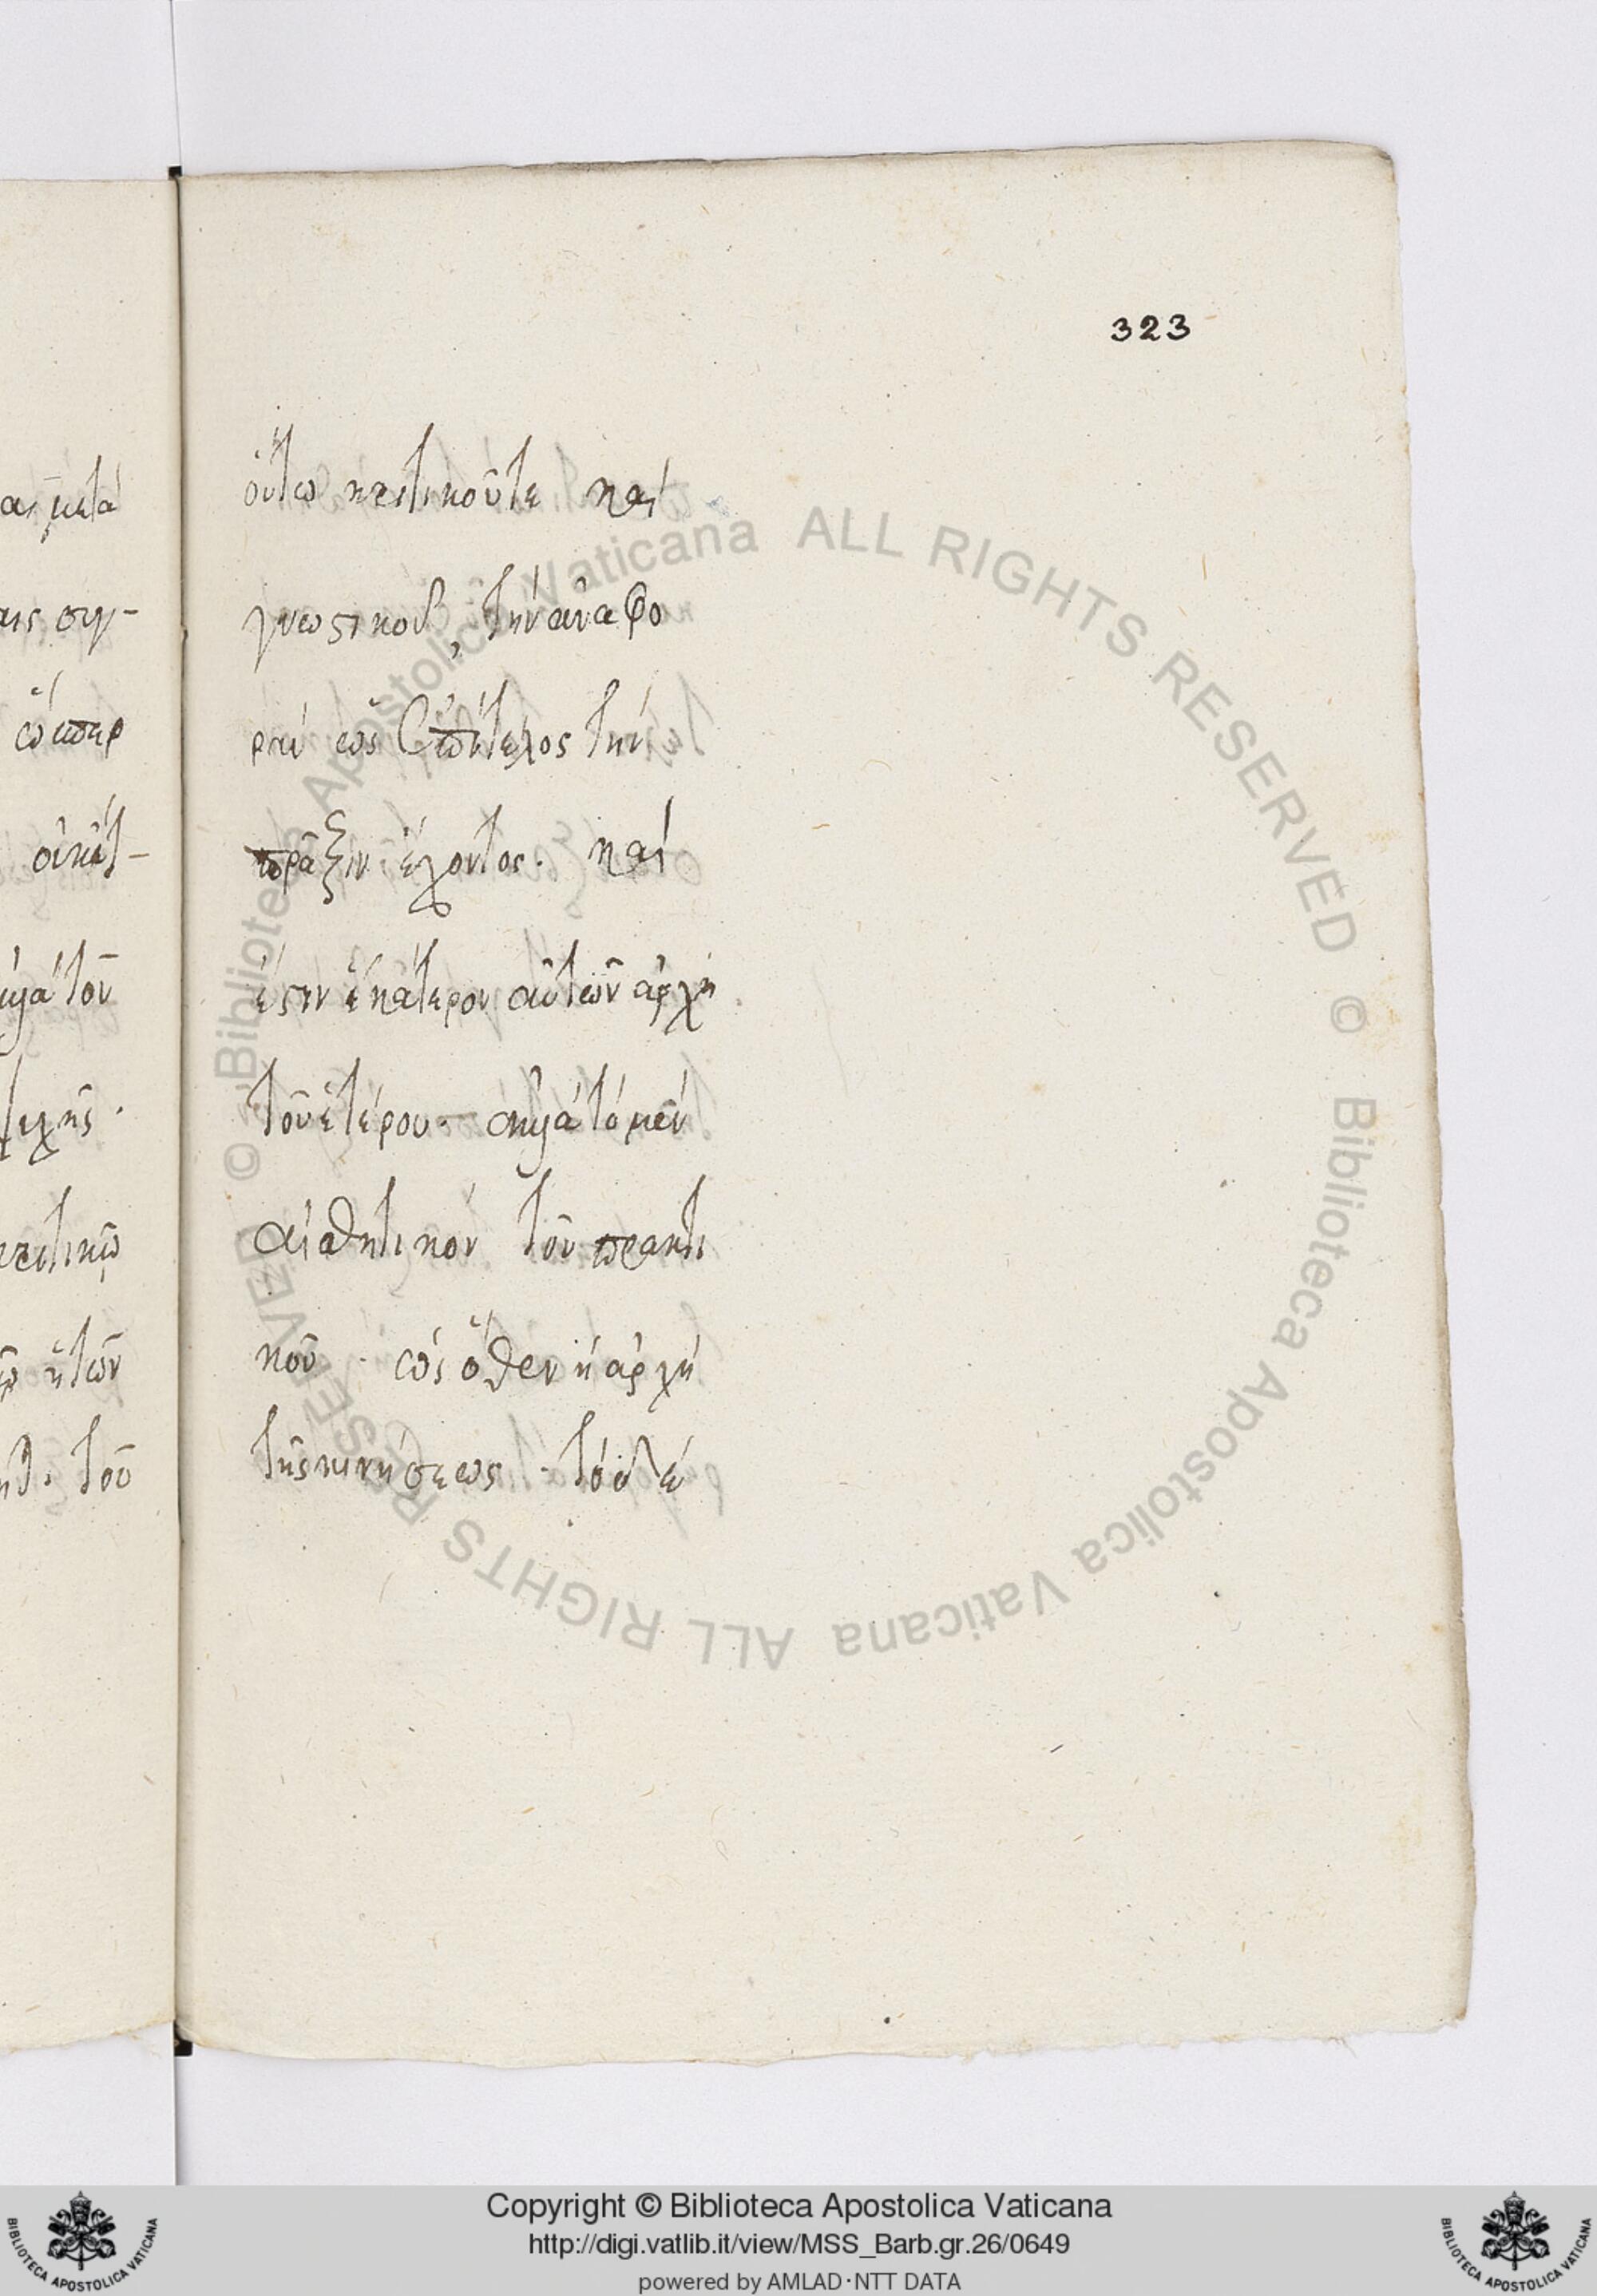 323
οὕτω κριτικοῦ τε καὶ
γνωστικοῦ, τὴν ἀναφο
ρὰν ὡς ἐπὶ τέλος τὴν
πρᾶξιν ἔχοντος· καὶ
ἔστιν ἑκάτερον αὐτῶν ἀρχὴ
τοῦ ἑτέρου· ἀλλὰ τὸ μὲν
αἰσθητικὸν τοῦ πρακτι
κοῦ · ὡς ὅθεν ἡ ἀρχὴ
τῆς κινήσεως · τὸ δὲ
αι μετὰ
αις συν-
ὥσπερ
οἰκει-
ἀλλὰ τοῦ
τέχνης·
κριτικῶ
ἢ τῶν
τοῦ
© Biblioteca Apostolica Vaticana ALL RIGHTS RESERVED © Biblioteca Apostolica Vaticana ALL RIGHTS RESERVED
Copyright © Biblioteca Apostolica Vaticana
http://digi.vatlib.it/view/MSS_Barb.gr.26/0649
powered by AMLAD·NTT DATA
BIBLIOTECA APOSTOLICA VATICANA
BIBLIOTECA APOSTOLICA VATICANA